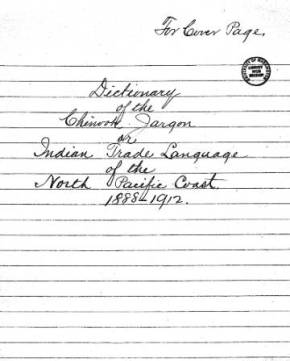 For Cover Page.
Dictionary
of the
Chinook Jargon
or
Indian Trade Language
of the
North Pacific Coast.
1888-1912.